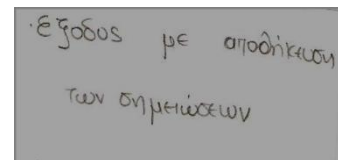 ·έξοδος με αποθήκευση
των σημειώσεων